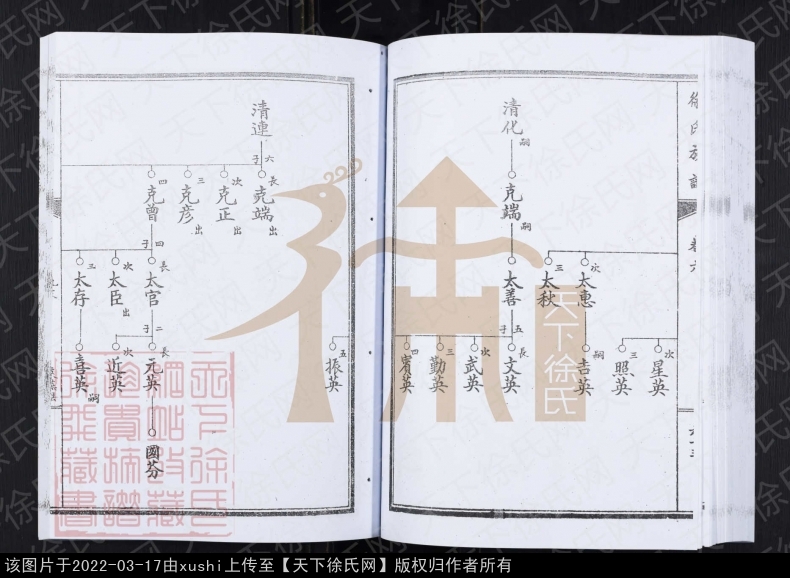 徐氏宗譜
卷六
清化
嗣
克端
嗣
次
太惠
三
太秋
太善
五子
次
星英
三
照英
嗣
吉英
長
文英
次
武英
三
勤英
四
賓英
五
振英
清連
六子
長
克端
出
次
克正
出
三
克彥
出
四
克曾
四子
長
太官
二子
次
太臣
出
三
太存
長
元英
次
近英
喜英
嗣
國芬
天下徐氏
天下徐氏网
该图片于2022-03-17由xushi上传至【天下徐氏网】版权归作者所有